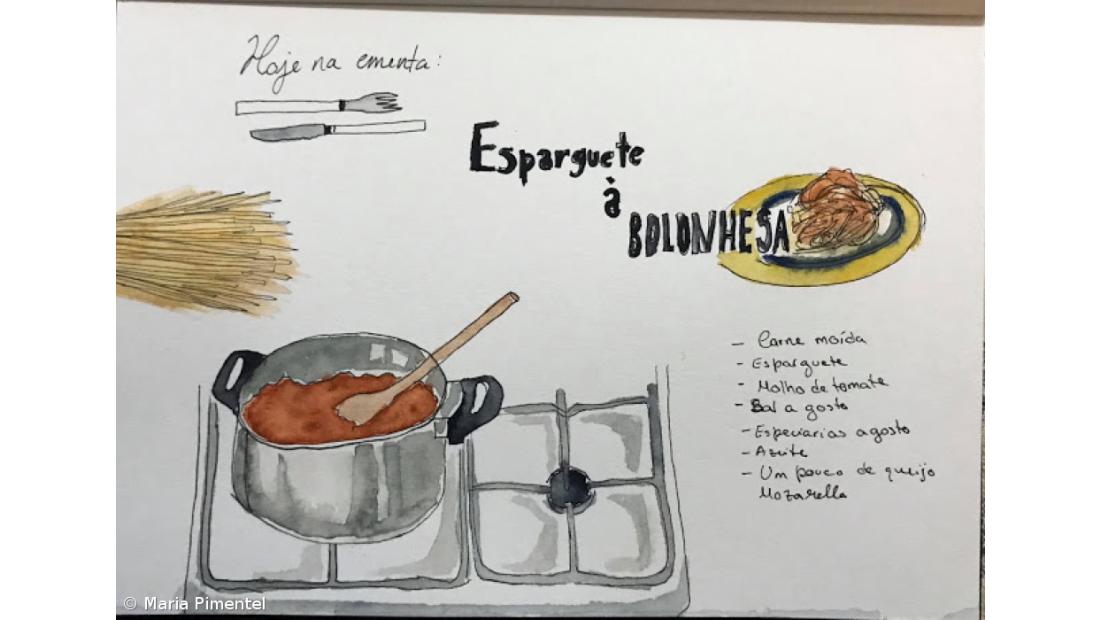 Hoje na ementa:
Esparguete
à
BOLONHESA
- Carne moída
- Esparguete
- Molho de tomate
- Sal a gosto
- Especiarias a gosto
- Azeite
- Um pouco de queijo
Mozarella
© Maria Pimentel